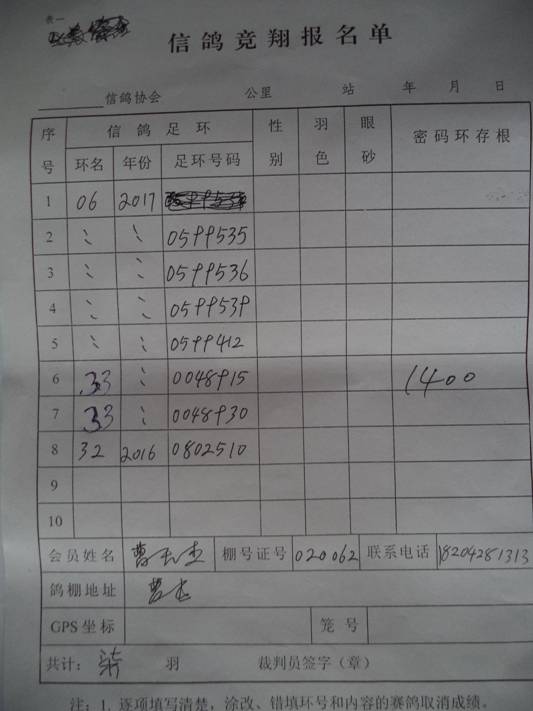 表一
信鸽竞翔报名单
信鸽协会 公里 站 年 月 日
序号 信鸽足环 性别 羽色 眼砂 密码环存根
环名 年份 足环号码
1 06 2017
2 〃 〃 0599535
3 〃 〃 0599536
4 〃 〃 0599539
5 〃 〃 0599412
6 33 〃 0048915 1400
7 33 〃 0048930
8 32 2016 0802510
9
10
会员姓名 曹 棚号证号 020062 联系电话 18204281313
鸽棚地址 曹
GPS坐标 笼号
共计: 羽 裁判员签字（章）
注：1. 逐项填写清楚，涂改、错填环号和内容的赛鸽取消成绩。